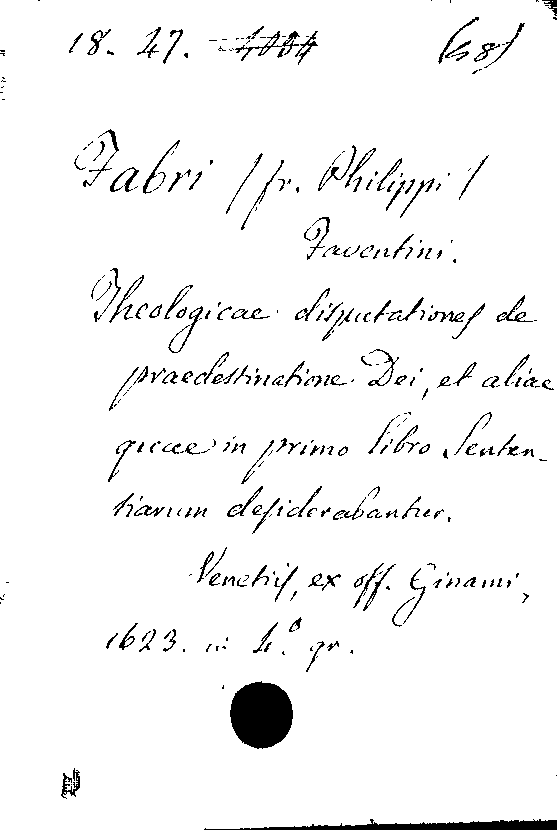 18. 27. 4004 (48)
Fabri /fr. Philippi/
Faventini.
Theologicae disputationes de
praedestinatione Dei, et aliae
quae in primo libro Senten-
tiarum desiderabantur.
Venetiis, ex off. Ginami,
1623. in 4.° gr.